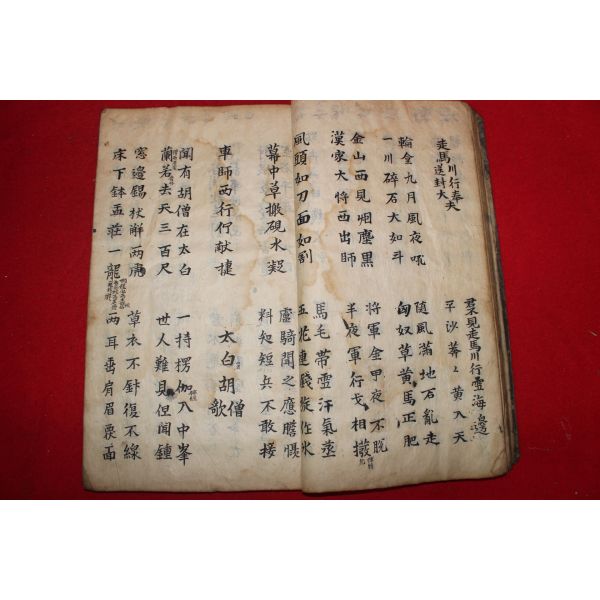 走馬川行奉
送封大夫
君見走馬川行雪海邊
平沙莽々黄入天
輪台九月風夜吼
一川碎石大如斗
随風滿地石亂走
匈奴草黄馬正肥
金山西見烟塵黑
漢家大将西出師
将軍金甲夜不脱
半夜軍行戈相撥
風頭如刀面如割
馬毛帶雪汗氣蒸
五花連錢旋作氷
幕中草檄硯水凝
虜騎聞之應膽慴
料知短兵不敢接
車師西行佇献捷
太白胡僧歌
聞有胡僧在太白
蘭若去天三百尺
一持楞伽入中峯
世人難見但聞鍾
窓邊錫杖解兩虎
床下鉢盂莊一龍
草衣不針復不線
兩耳垂肩眉覆面